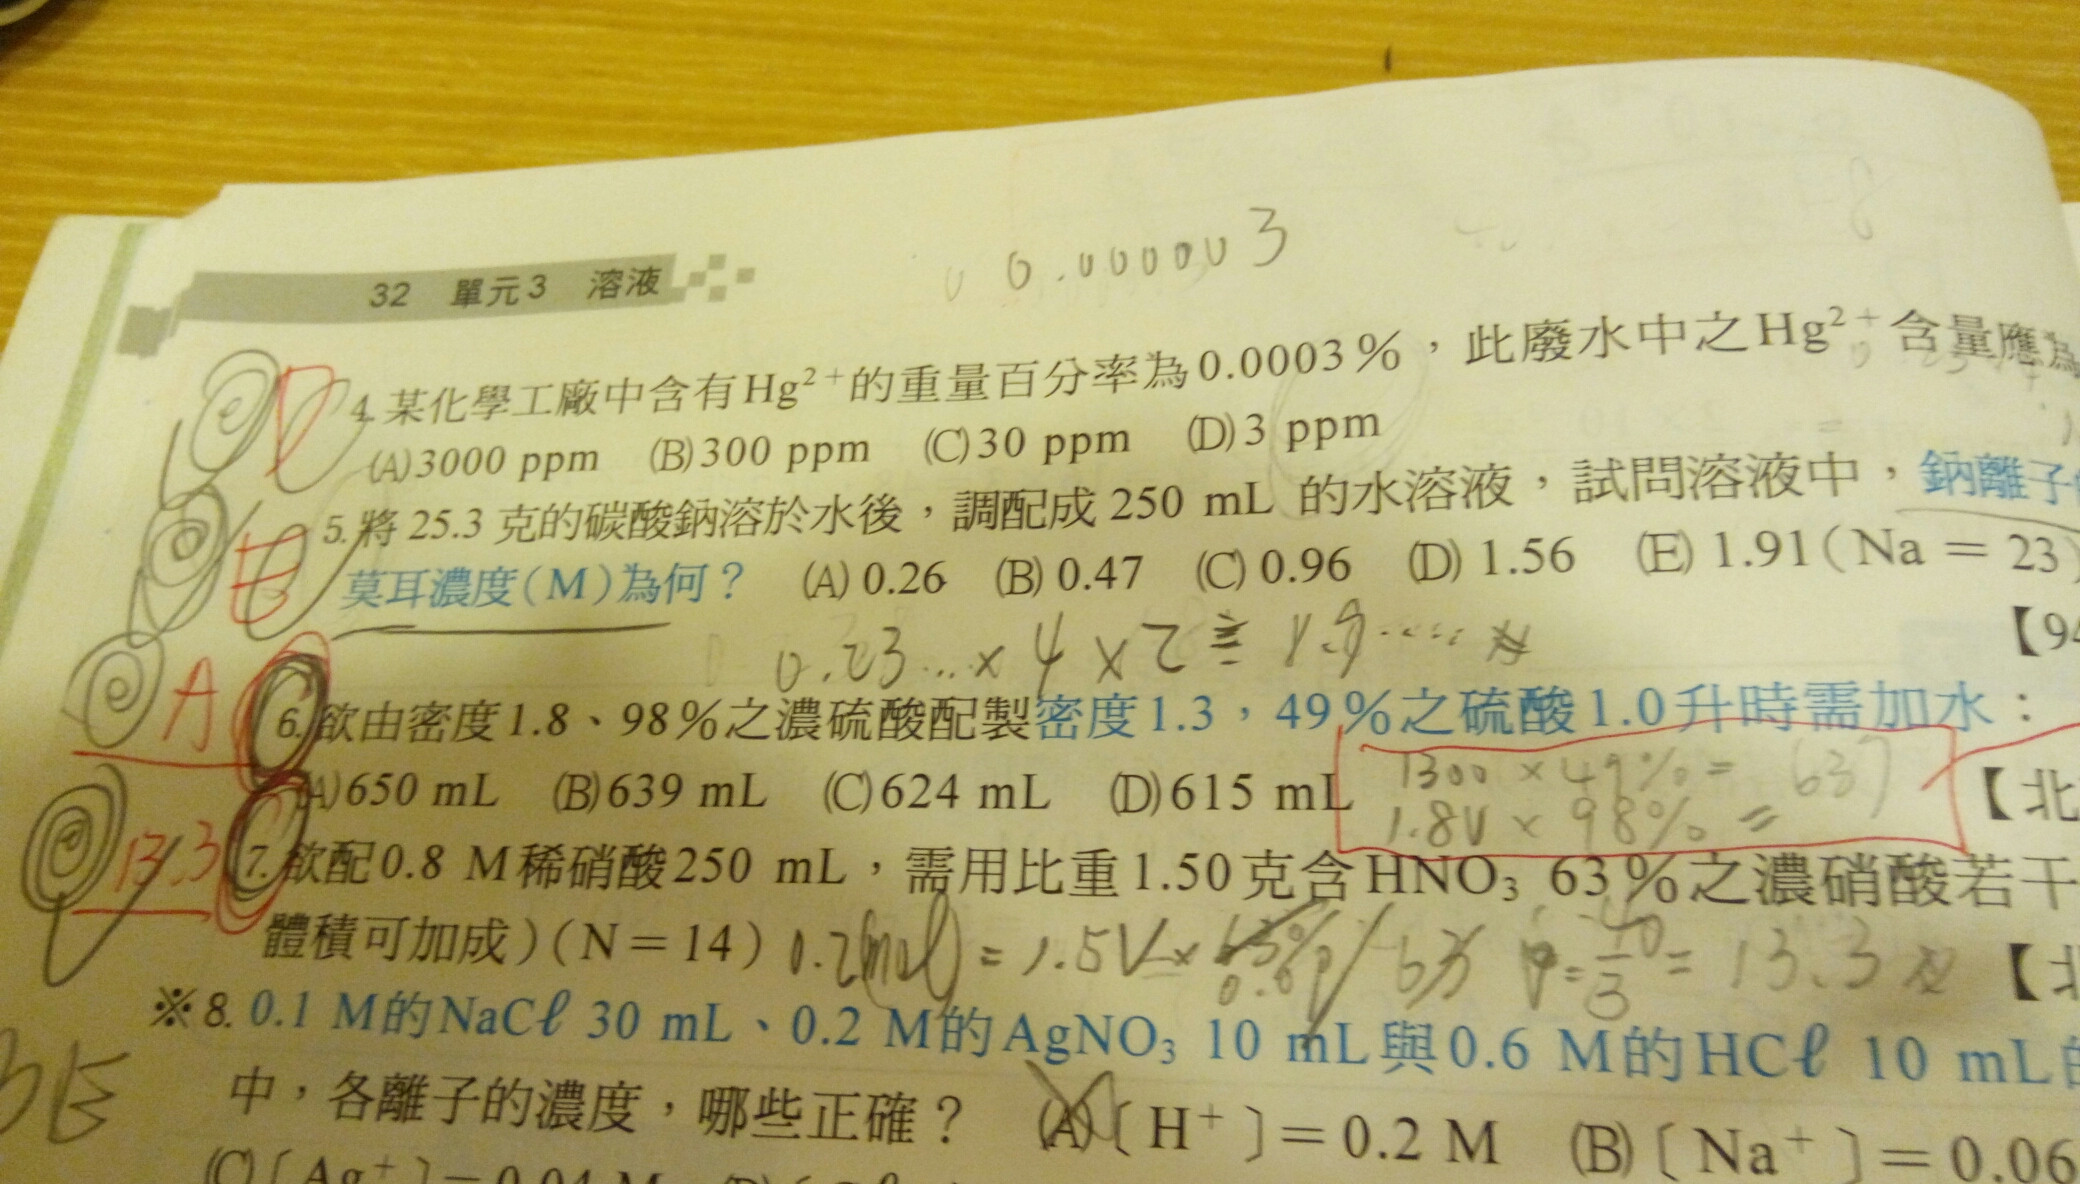 0.000003
32 單元3 溶液
D 4.某化學工廠中含有Hg²⁺的重量百分率為0.0003%,此廢水中之Hg²⁺含量應為
(A)3000 ppm (B)300 ppm (C)30 ppm (D)3 ppm
E 5.將25.3克的碳酸鈉溶於水後,調配成250 mL的水溶液,試問溶液中,鈉離子
莫耳濃度(M)為何? (A) 0.26 (B) 0.47 (C) 0.96 (D) 1.56 (E) 1.91(Na=23)
【94
0.23...×4×2≒1.9.....
A 6.欲由密度1.8、98%之濃硫酸配製密度1.3,49%之硫酸1.0升時需加水:
(A)650 mL (B)639 mL (C)624 mL (D)615 mL 【北
1300×49%=637
1.8V×98%=
13.3 7.欲配0.8 M稀硝酸250 mL,需用比重1.50克含HNO₃ 63%之濃硝酸若干
體積可加成)(N=14) 0.2(mol)=1.5V× 63%/63 =40/3=13.3 【北
※8. 0.1 M的NaCℓ 30 mL、0.2 M的AgNO₃ 10 mL與0.6 M的HCℓ 10 mL的
中,各離子的濃度,哪些正確? (A)〔H⁺〕=0.2 M (B)〔Na⁺〕=0.06
(C)〔Ag⁺〕=0.04 M